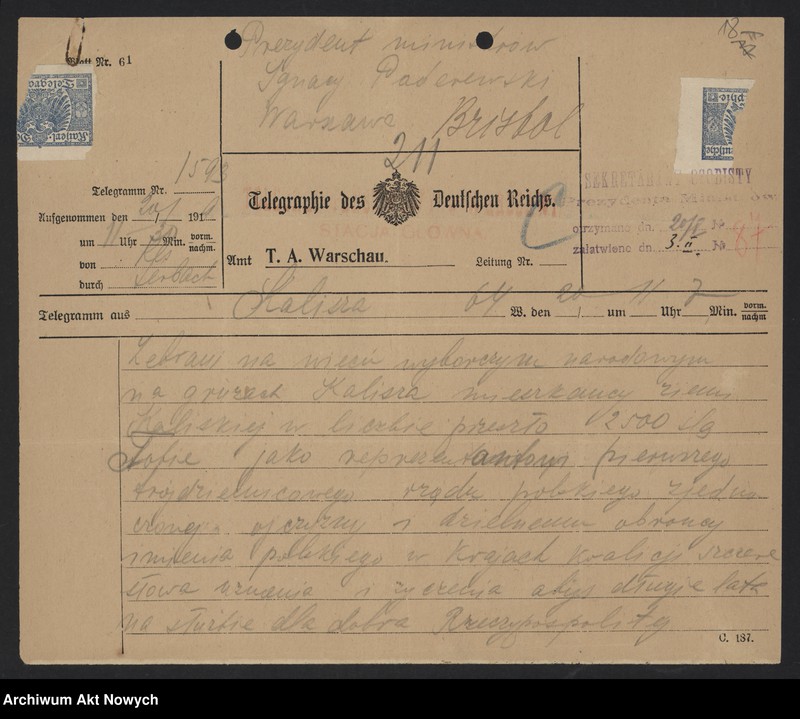 Blatt Nr. 61
Prezydent ministrów
Ignacy Paderewski
Warszawa Bristol
211
1593
Telegramm Nr.
Aufgenommen den 20/1 191 9
um 11 Uhr 30 Min. vorm. nachm.
von
durch
Telegraphie des Deutschen Reichs.
STACJA GŁÓWNA
Amt T. A. Warschau.
Leitung Nr.
SEKRETARJAT OSOBISTY
Prezydenta Ministrów
otrzymano dn. 20/I №
załatwiono dn. 3.II. № 87
Telegramm aus Kalisza 64 W. den 20 / um 11 Uhr 7 Min. vorm. nachm
Zebrani na wiecu wyborczym narodowym
na gruzach Kalisza mieszkańcy ziemi
Kaliskiej w liczbie przeszło 2500 ślą
Tobie jako reprezentantowi pierwszego
trójdzielnicowego rządu polskiego zjedno
czonej ojczyzny i dzielnemu obrońcy
imienia polskiego w krajach koalicji szczere
słowa uznania i życzenia abyś długie lata
na służbie dla dobra Rzeczypospolitej
C. 187.
Archiwum Akt Nowych